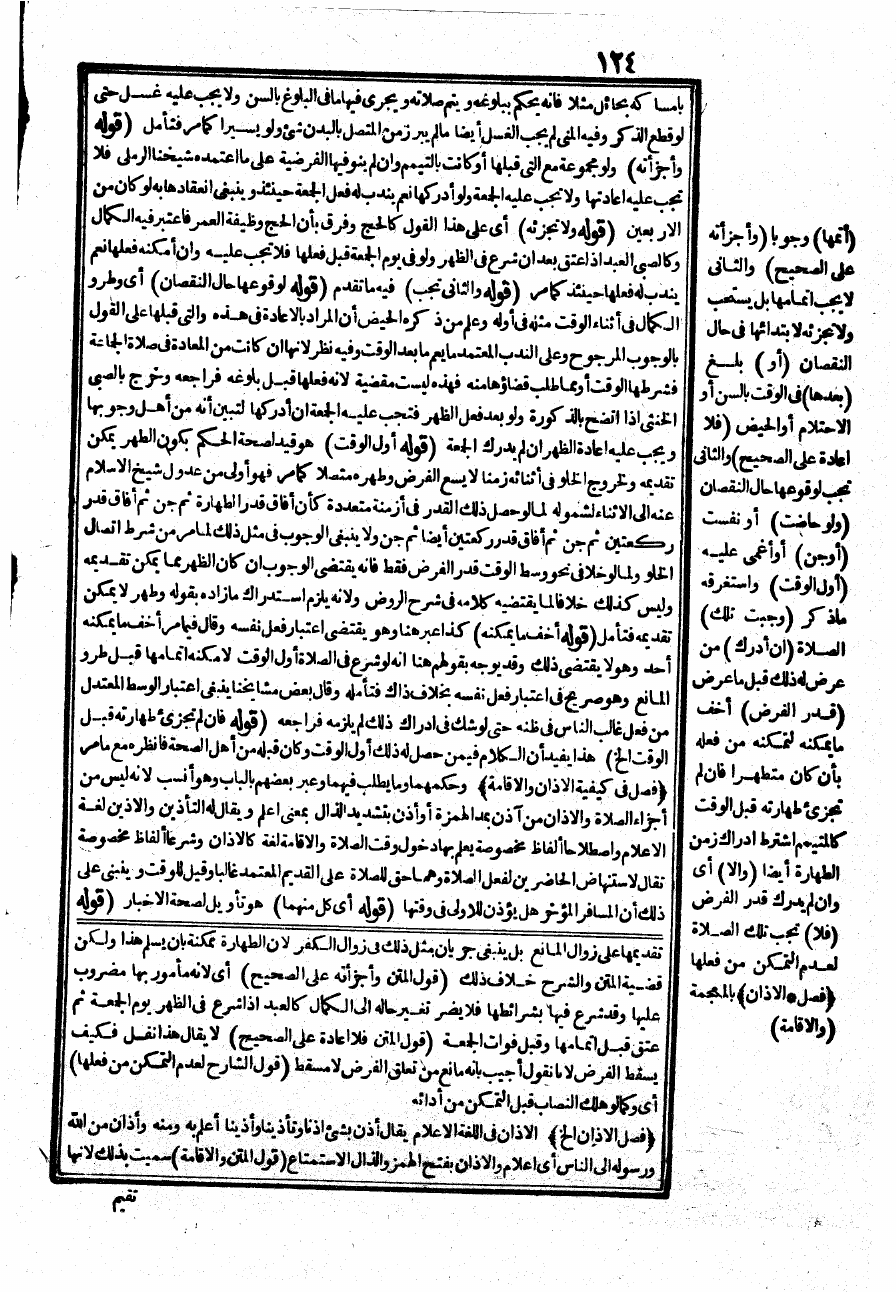 ١٢٤
بامساكه بحائل مثلا فانه يحكم ببلوغه ويتم صلاته ويجرى فيها ما فى البلوغ بالسن ولا يجب عليه غسل حتى
لو قطع الذكر وفيه المنى لم يجب الغسل أيضا ما لم يبرز من المتصل بالبدن شئ ولو يسيرا كما مر فتأمل (قوله
وأجزأته) ولو مجموعة مع التى قبلها أو كانت بالتيمم وان لم ينو فيها الفرضية على ما اعتمده شيخنا الرملى فلا
تجب عليه اعادتها ولا تجب عليه الجمعة ولو أدركها نعم يندب له فعل الجمعة حينئذ وينبغى انعقادها به لو كان من
الاربعين (قوله ولا تجزئه) أى على هذا القول كالحج وفرق بأن الحج وظيفة العمر فاعتبر فيه الكمال
وكالصبى العبد اذا عتق بعد ان شرع فى الظهر ولو فى يوم الجمعة قبل فعلها فلا تجب عليه وان أمكنه فعلها نعم
يندب له فعلها حينئذ كما مر (قوله والثانى تجب) فيه ما تقدم (قوله لوقوعها حال النقصان) أى وطرو
الكمال فى أثناء الوقت مثله فى أوله وعلم من ذكره الحيض أن المراد بالاعادة فى هذه والتى قبلها على القول
بالوجوب المرجوح وعلى الندب المعتمد ما يعم ما بعد الوقت وفيه نظر لانها ان كانت من المعادة فى صلاة الجماعة
فشرطها الوقت أو مما طلب قضاؤها منه فهذه ليست مقضية لانه فعلها قبل بلوغه فراجعه وخرج بالصبى
الخنثى اذا اتضح بالذكورة ولو بعد فعل الظهر فتجب عليه الجمعة ان أدركها لتبين أنه من أهل وجوبها
ويجب عليه اعادة الظهر ان لم يدرك الجمعة (قوله أول الوقت) هو قيد لصحة الحكم بكون الطهر يمكن
تقديمه ولخروج الخلو فى أثنائه زمنا لا يسع الفرض وطهره متصلا كما مر فهو أولى من عدول شيخ الاسلام
عنه الى الاثناء لشموله لما لو حصل ذلك القدر فى أزمنة متعددة كأن أفاق قدر الطهارة ثم جن ثم أفاق قدر
ركعتين ثم جن ثم أفاق قدر ركعتين أيضا ثم جن ولا ينبغى الوجوب فى مثل ذلك لما مر من شرط اتصال
الخلو ولما لو خلا فى نحو وسط الوقت قدر الفرض فقط فانه يقتضى الوجوب ان كان الطهر مما يمكن تقديمه
وليس كذلك خلافا لما يقتضيه كلامه فى شرح الروض ولانه يلزم استدراك ما زاده بقوله وطهر لا يمكن
تقديمه فتأمل (قوله أخف ما يمكنه) كذا عبر هنا وهو يقتضى اعتبار فعل نفسه وقال فيما مر أخف ما يمكنه
أحد وهو لا يقتضى ذلك وقد يوجه بقولهم هنا انه لو شرع فى الصلاة أول الوقت لامكنه اتمامها قبل طرو
المانع وهو صريح فى اعتبار فعل نفسه بخلاف ذاك فتأمله وقال بعض مشايخنا ينبغى اعتبار الوسط المعتدل
من فعل غالب الناس فى ظنه حتى لو شك فى ادراك ذلك لم يلزمه فراجعه (قوله فان لم تجزئ طهارته قبل
الوقت الخ) هذا يفيد أن الكلام فيمن حصل له ذلك أول الوقت وكان قبله من أهل الصحة فانظره مع ما مر
﴿فصل فى كيفية الاذان والاقامة﴾ وحكمهما وما يطلب فيهما وعبر بعضهم بالباب وهو أنسب لانه ليس من
أجزاء الصلاة والاذان من آذن بمد الهمزة أو أذن بتشديد الذال بمعنى اعلم ويقال له التأذين والاذين لغة
الاعلام واصطلاحا ألفاظ مخصوصة يعلم بها دخول وقت الصلاة والاقامة لغة كالاذان وشرعا ألفاظ مخصوصة
تقال لاستنهاض الحاضرين لفعل الصلاة وهما حق للصلاة على القديم المعتمد غالبا وقيل للوقت وينبنى على
ذلك أن المسافر المؤخر هل يؤذن للاولى فى وقتها (قوله أى كل منهما) هو تأويل لصحة الاخبار (قوله
تقديمها على زوال المانع بل ينبغى جريان مثل ذلك فى زوال الكفر لان الطهارة ممكنة بان يسلم هذا ولكن
قضية المتن والشرح خلاف ذلك (قول المتن وأجزأته على الصحيح) أى لانه مأمور بها مضروب
عليها وقد شرع فيها بشرائطها فلا يضر تغير حاله الى الكمال كالعبد اذا شرع فى الظهر يوم الجمعة ثم
عتق قبل اتمامها وقبل فوات الجمعة (قول المتن فلا اعادة على الصحيح) لا يقال هذا نفل فكيف
يسقط الفرض لانا نقول أجيب بانه مانع من تعلق الفرض لا مسقط (قول الشارح لعدم التمكن من فعلها)
أى وكما لو هلك النصاب قبل التمكن من أدائه
﴿فصل الاذان الخ﴾ الاذان فى اللغة الاعلام يقال أذن بشئ اذنا وتأذينا وأذينا أعلم به ومنه وأذان من الله
ورسوله الى الناس أى اعلام والاذان بفتح الهمز والذال الاستمتاع (قول المتن والاقامة) سميت بذلك لانها
تقيم
(أتمها) وجوبا (وأجزأته
على الصحيح) والثانى
لا يجب اتمامها بل يستحب
ولا تجزئه لابتدائها فى حال
النقصان (أو) بلغ
(بعدها) فى الوقت بالسن أو
الاحتلام أو الحيض (فلا
اعادة على الصحيح) والثانى
تجب لوقوعها حال النقصان
(ولو حاضت) أو نفست
(أو جن) أو أغمى عليه
(أول الوقت) واستغرقه
ما ذكر (وجبت تلك)
الصلاة (ان أدرك) من
عرض له ذلك قبل ما عرض
(قدر الفرض) أخف
ما يمكنه لتمكنه من فعله
بأن كان متطهرا فان لم
تجزئ طهارته قبل الوقت
كالمتيمم اشترط ادراك زمن
الطهارة أيضا (والا) أى
وان لم يدرك قدر الفرض
(فلا) تجب تلك الصلاة
لعدم التمكن من فعلها
﴿فصل * الاذان﴾ بالمعجمة
(والاقامة)